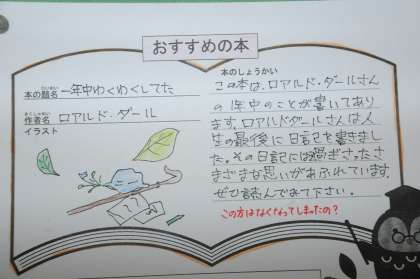 おすすめの本
本の題名 一年中わくわくしてた
作者名 ロアルド・ダール
イラスト
本のしょうかい
この本は、ロアルド・ダールさん
の1年中のことが書いてあり
ます。ロアルドダールさんは人
生の最後に日記を書きまし
た。その日記には過ぎさったさ
まざまな思いがあふれています。
ぜひ読んでみて下さい。
この方はなくなってしまったの？